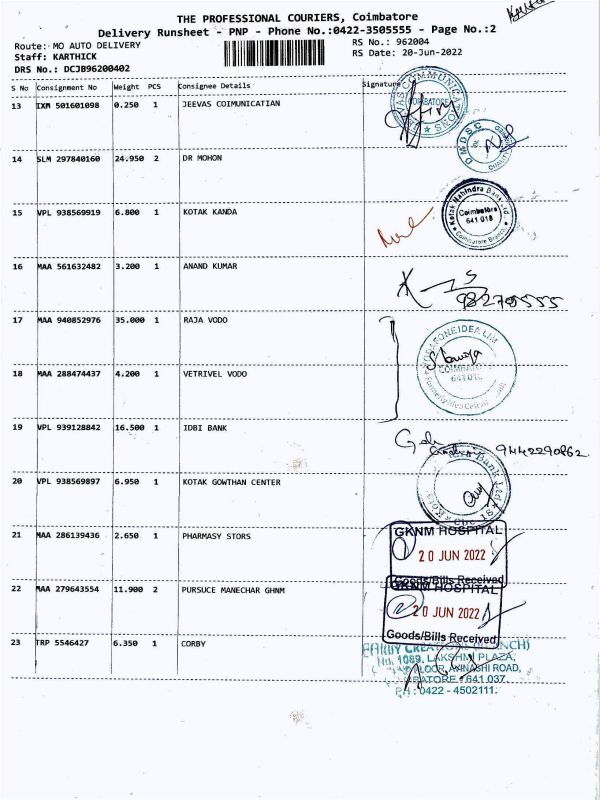 THE PROFESSIONAL COURIERS, Coimbatore
Delivery Runsheet - PNP - Phone No.:0422-3505555 - Page No.:2
Route: MO AUTO DELIVERY
RS No.: 962004
Staff: KARTHICK
RS Date: 20-Jun-2022
DRS No.: DCJB96200402
S No Consignment No Weight PCS Consignee Details Signature
13 IXM 501601098 0.250 1 JEEVAS COIMUNICATIAN
COMMUNICATIONS
COIMBATORE
DMDSC
14 SLM 297840160 24.950 2 DR MOHON
15 VPL 938569919 6.800 1 KOTAK KANDA
Kotak Mahindra Bank Ltd
Coimbatore
641 018
Coimbatore Branch
16 MAA 561632482 3.200 1 ANAND KUMAR
17 MAA 940852976 35.000 1 RAJA VODO
VODAFONEIDEA LIM
COIMBATO
18 MAA 288474437 4.200 1 VETRIVEL VODO
19 VPL 939128842 16.500 1 IDBI BANK
9442290862
20 VPL 938569897 6.950 1 KOTAK GOWTHAN CENTER
Bank Ltd
21 MAA 286139436 2.650 1 PHARMASY STORS
GKNM HOSPITAL
1
20 JUN 2022
Goods/Bills Received
22 MAA 279643554 11.900 2 PURSUCE MANECHAR GHNM
GKNM HOSPITAL
2
20 JUN 2022
Goods/Bills Received
23 TRP 5546427 6.350 1 CORBY
1089, LAKSHMI PLAZA,
ROAD,
641 037.
PH : 0422 - 4502111.